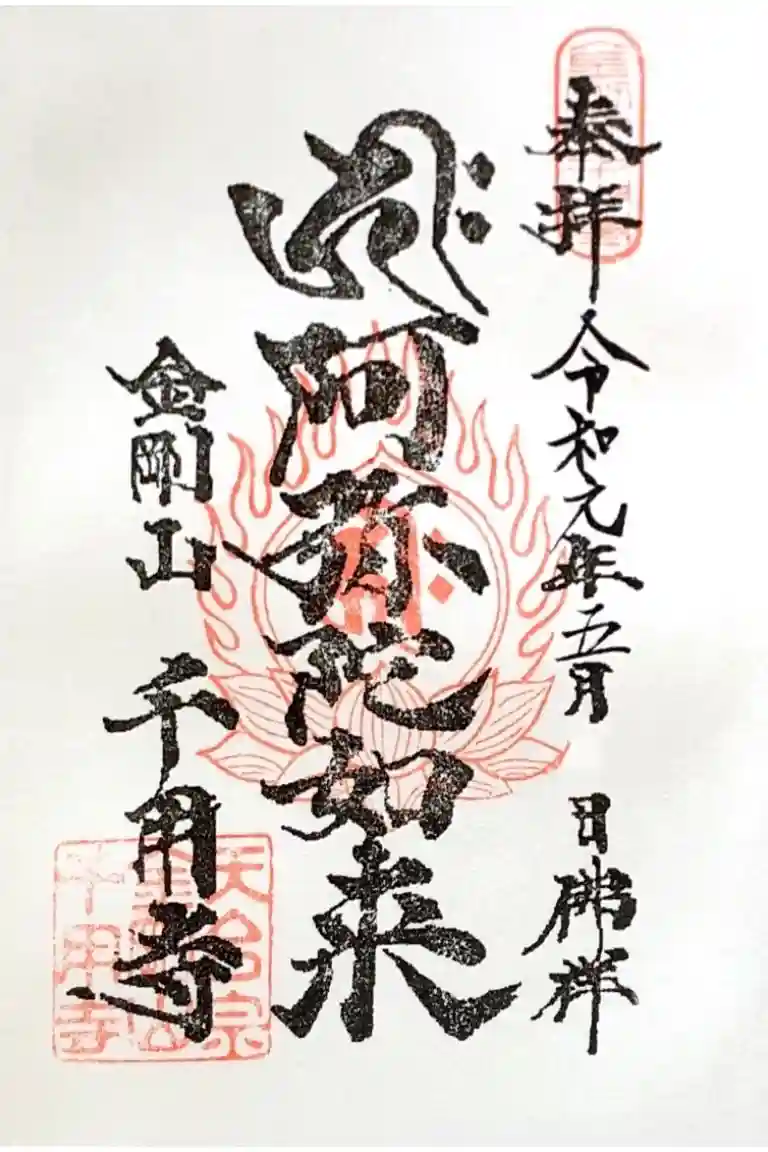 奉拝
令和元年五月 日佛祥
阿弥陀如来
金剛山 千用寺
天台宗
千用寺